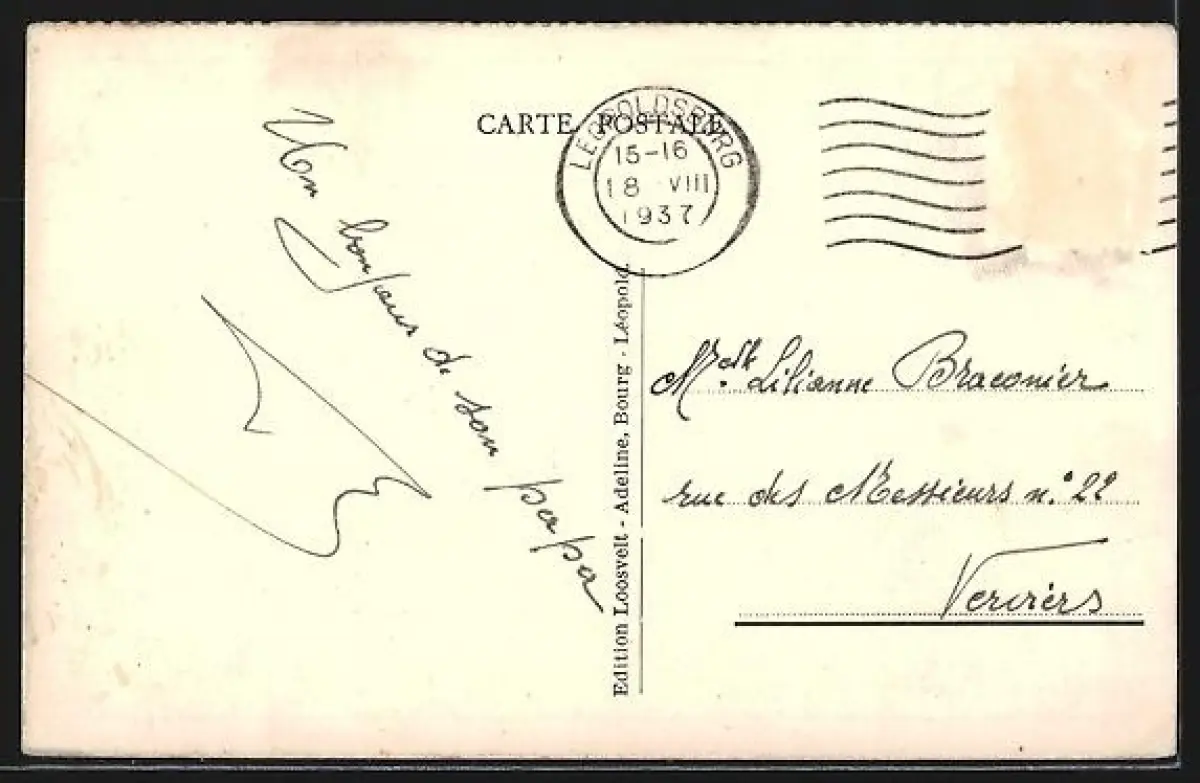 CARTE POSTALE
LEOPOLDSBURG
15-16
18 VIII
1937
Un bonjour de son papa
Edition Loosvelt - Adeline, Bourg - Léopold.
Melle Lilianne Braconier
rue des Messieurs n.° 22
Verviers